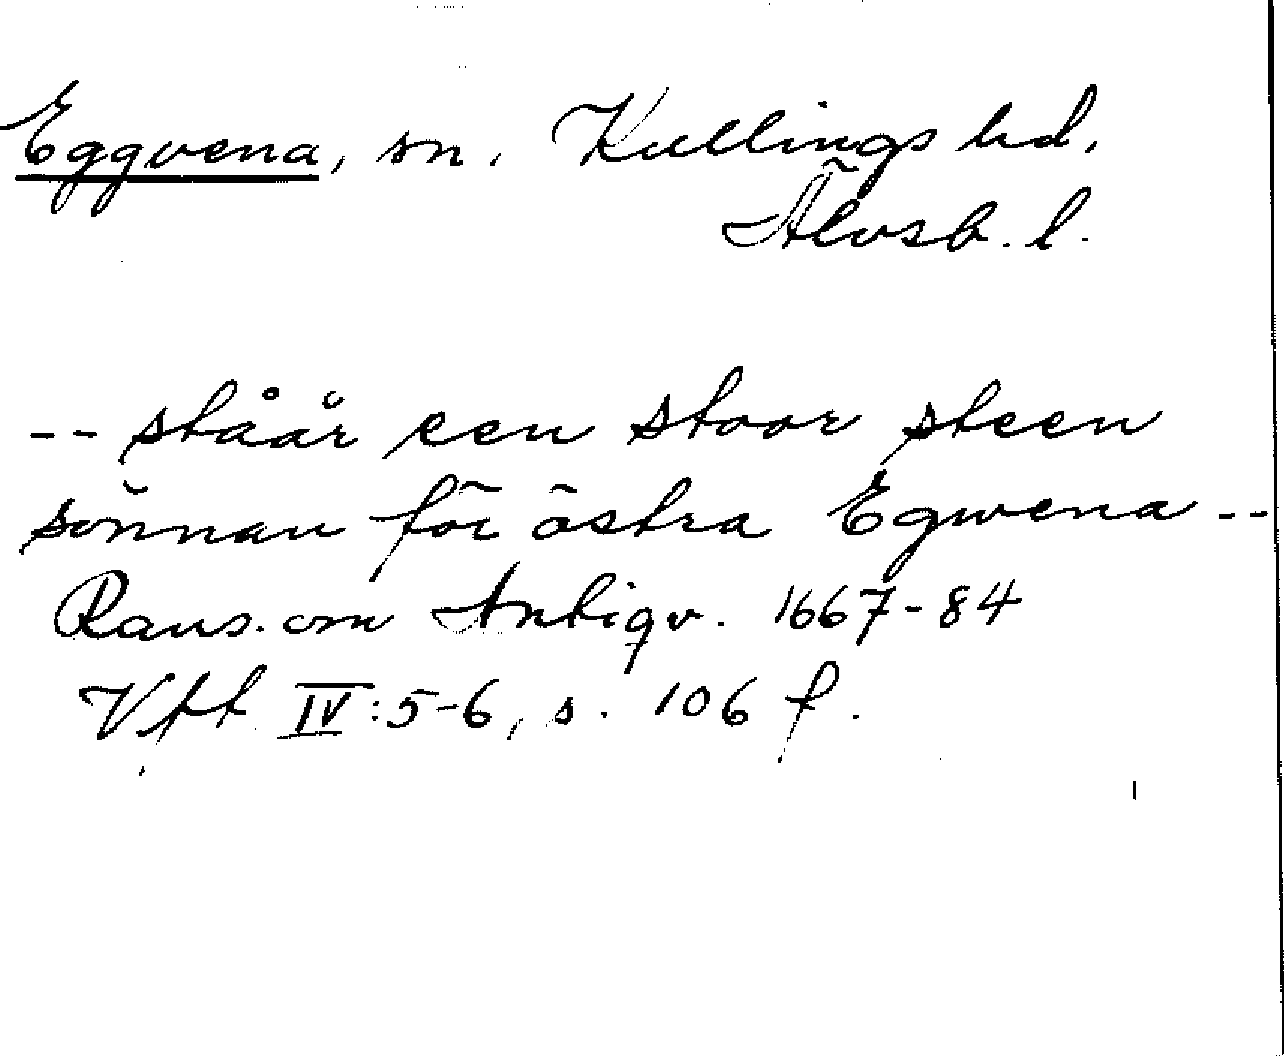 Eggvena, sn. Kullings hd,
Älvsb. l.
-- ståår een stoor steen
sönnan för östra Egwena --
Rans. om Antiqv. 1667-84
Vft IV:5-6, s. 106 f.